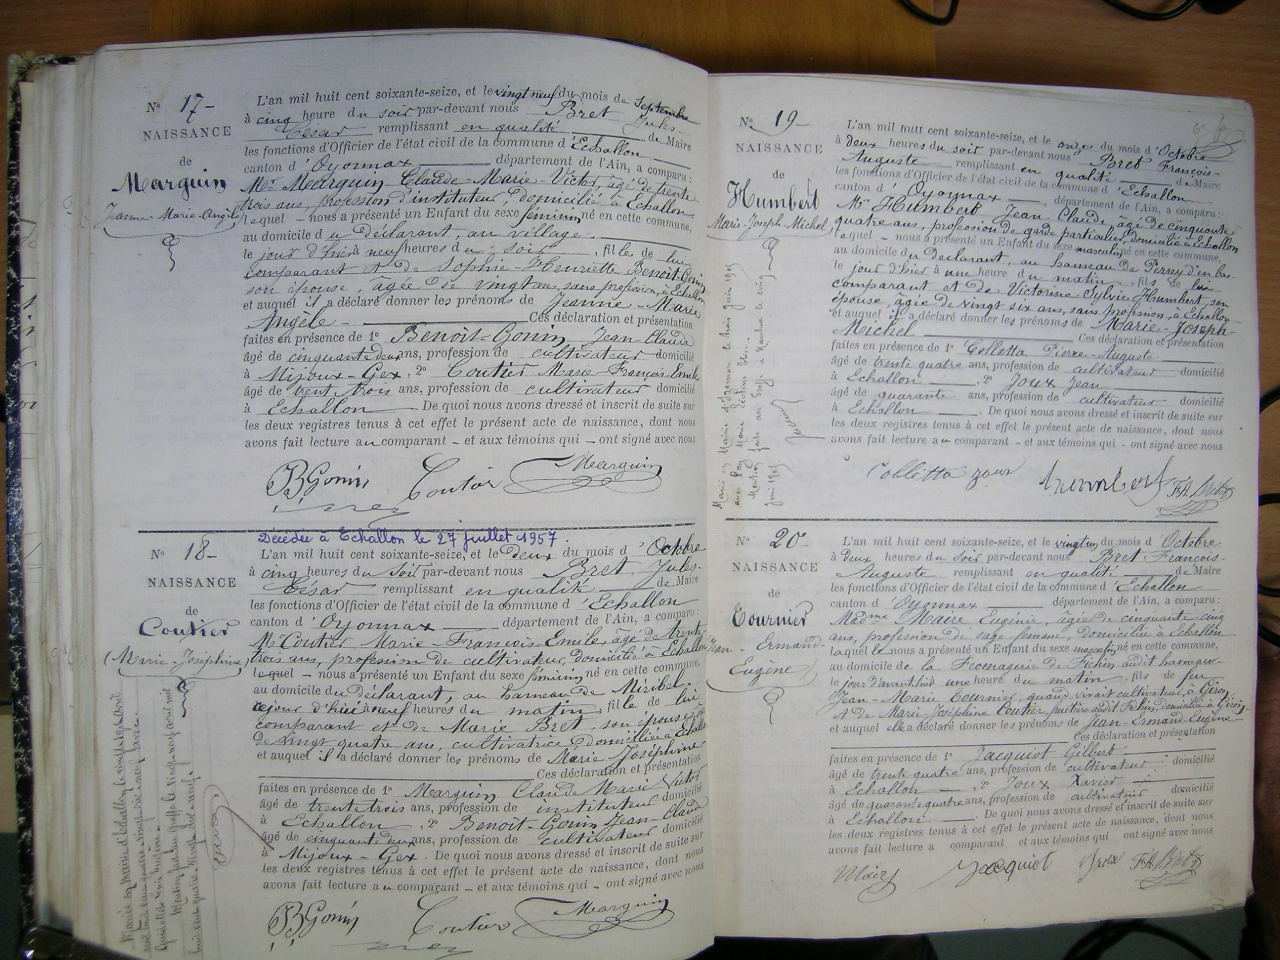 Nº 17
NAISSANCE
de
Marguin
Jeanne-Marie-Angèle
L'an mil huit cent soixante-seize, et le vingt neuf du mois de Septembre
à cinq heure du soir par-devant nous Bret Jules
César remplissant en qualité de Maire
les fonctions d'Officier de l'état civil de la commune d'Echallon
canton d'Oyonnax département de l'Ain, a comparu:
Mr Marguin Claude-Marie-Victor, âgé de trente
trois ans, profession d'instituteur, domicilié à Echallon
lequel nous a présenté un Enfant du sexe féminin né en cette commune,
au domicile du déclarant, au village
le jour d'hier à neuf heures du soir, fille de lui
comparant et de Sophie-Henriette Benoit-Gonin
son épouse, âgée de vingt ans, sans profession, à Echallon
et auquel il a déclaré donner les prénoms de Jeanne-Marie
Angèle Ces déclaration et présentation
faites en présence de 1º Benoit-Gonin Jean-Claude
âgé de cinquante deux ans, profession de cultivateur domicilié
à Mijoux-Gex, 2º Coutier Marie-François-Emile
âgé de trente trois ans, profession de cultivateur domicilié
à Echallon. De quoi nous avons dressé et inscrit de suite sur
les deux registres tenus à cet effet le présent acte de naissance, dont nous
avons fait lecture au comparant et aux témoins qui ont signé avec nous
BGonin Coutier Marguin
Décédée à Echallon le 27 juillet 1957.
Nº 18
NAISSANCE
de
Coutier
(Marie-Joséphine)
L'an mil huit cent soixante-seize, et le deux du mois d'Octobre
à cinq heures du soir par-devant nous Bret Jules
César remplissant en qualité de Maire
les fonctions d'Officier de l'état civil de la commune d'Echallon
canton d'Oyonnax département de l'Ain, a comparu:
Mr Coutier Marie-François-Emile, âgé de trente
trois ans, profession de cultivateur, domicilié à Echallon
lequel nous a présenté un Enfant du sexe féminin né en cette commune,
au domicile du Déclarant, au hameau de Miribel
le jour d'hier à neuf heures du matin, fille de lui
comparant et de Marie Bret, son épouse
de vingt quatre ans, cultivatrice domiciliée à Echallon
et auquel il a déclaré donner les prénoms de Marie Joséphine
Ces déclaration et présentation
faites en présence de 1º Marguin Claude Marie Victor
âgé de trente trois ans, profession de instituteur domicilié
à Echallon, 2º Benoit-Gonin Jean-Claude
âgé de cinquante deux ans, profession de cultivateur domicilié
à Mijoux-Gex. De quoi nous avons dressé et inscrit de suite sur
les deux registres tenus à cet effet le présent acte de naissance, dont nous
avons fait lecture au comparant et aux témoins qui ont signé avec nous
BGonin Coutier Marguin
Nº 19
NAISSANCE
de
Humbert
Marie-Joseph-Michel
L'an mil huit cent soixante-seize, et le onze du mois d'Octobre
à deux heures du soir par-devant nous Bret François-
Auguste remplissant en qualité de Maire
les fonctions d'Officier de l'état civil de la commune d'Echallon
canton d'Oyonnax, département de l'Ain, a comparu:
Mr Humbert Jean Claude âgé de cinquante
quatre ans, profession de garde particulier, domicilié à Echallon
lequel nous a présenté un Enfant du sexe masculin né en cette commune,
au domicile du Déclarant, au hameau de
le jour d'hier à une heure du matin, fils de lui
comparant et de Victorine Sylvie Humbert, son
épouse, âgée de vingt six ans, sans profession, à Echallon
et auquel il a déclaré donner les prénoms de Marie-Joseph-
Michel Ces déclaration et présentation
faites en présence de 1º Colletta Pierre-Auguste
âgé de trente quatre ans, profession de cultivateur domicilié
à Echallon, 2º Joux Jean
âgé de quarante ans, profession de cultivateur domicilié
à Echallon. De quoi nous avons dressé et inscrit de suite sur
les deux registres tenus à cet effet le présent acte de naissance, dont nous
avons fait lecture au comparant et aux témoins qui ont signé avec nous
Colletta Joux Humbert
Nº 20
NAISSANCE
de
Tournier
Jean-Ermand-
Eugène
L'an mil huit cent soixante-seize, et le vingt du mois d'Octobre
à deux heures du soir par-devant nous Bret François-
Auguste remplissant en qualité de Maire
les fonctions d'Officier de l'état civil de la commune d'Echallon
canton d'Oyonnax département de l'Ain, a comparu:
Made Maire Eugénie, âgée de cinquante cinq
ans, profession de sage femme, domiciliée à Echallon
laquelle nous a présenté un Enfant du sexe masculin né en cette commune,
au domicile de la Fromagerie de audit hameau
le jour d'avant hier à une heure du matin, fils de feu
Jean-Marie Tournier, quand vivait cultivateur, à Giron
et de Marie Joséphine Coutier
et auquel elle a déclaré donner les prénoms de Jean-Ermand-Eugène
Ces déclaration et présentation
faites en présence de 1º Jacquiot Gilbert
âgé de trente quatre ans, profession de cultivateur domicilié
à Echallon, 2º Joux Xavier
âgé de quarante quatre ans, profession de cultivateur domicilié
à Echallon. De quoi nous avons dressé et inscrit de suite sur
les deux registres tenus à cet effet le présent acte de naissance, dont nous
avons fait lecture a comparant et aux témoins qui ont signé avec nous
Maire Jacquiot Joux